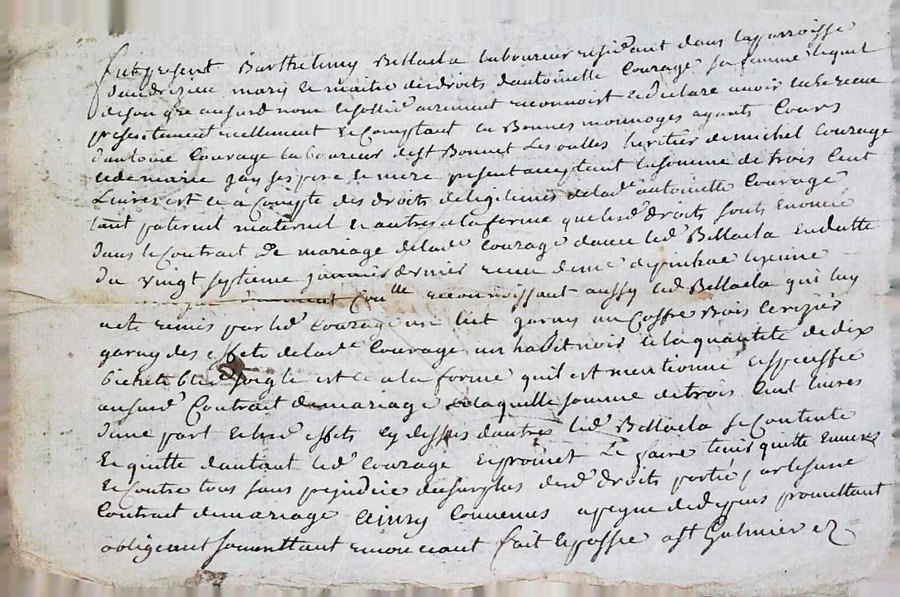 fut present Barthelemy Bellacla laboureur residant dans la parroisse
d'andrezieu mary et maitre des droits d'antoinette Courage sa femme lequel
de son gre au surd nom et sollidairement reconnoist et declare avoir eu et receu
presentement reellement et Comptant en Bonnes monnoyes ayants Cours
d'antoine Courage laboureur de st Bonnet Les oulles heritier de michel Courage
et de marie ses pere et mere present acceptant la somme de trois Cent
Livres et ce a Compte des droits de legitimes de lad antoinette Courage
tant paternel maternel et autres a la forme que lesd droits sont Enoncé
dans le Contrat de mariage de lad Courage avec led Bellacla en datte
du vingt septieme janvier dernier receu
reconnoissant aussy led Bellacla qui luy
a ete remis par led Courage un lict garny un Coffre Bois Cerizier
garny des effets de lad Courage un habit noir et la quantité de dix
bichets bled seigle et ce a la forme qu'il est mentionné et speciffié
au surd Contrat de mariage de laquelle somme de trois Cent livres
d'une part et desd effets cy dessus d'autre led Bellacla se Contente
et quitte d'autant led Courage et promet Le faire tenir quitte Envers
et Contre tous sans prejudice du surplus desd droits porté par le susd
Contrat de mariage Ainsy Convenus a peyne de depens promettant
obligeant soumettant renonceant fait et passé a st Galmier